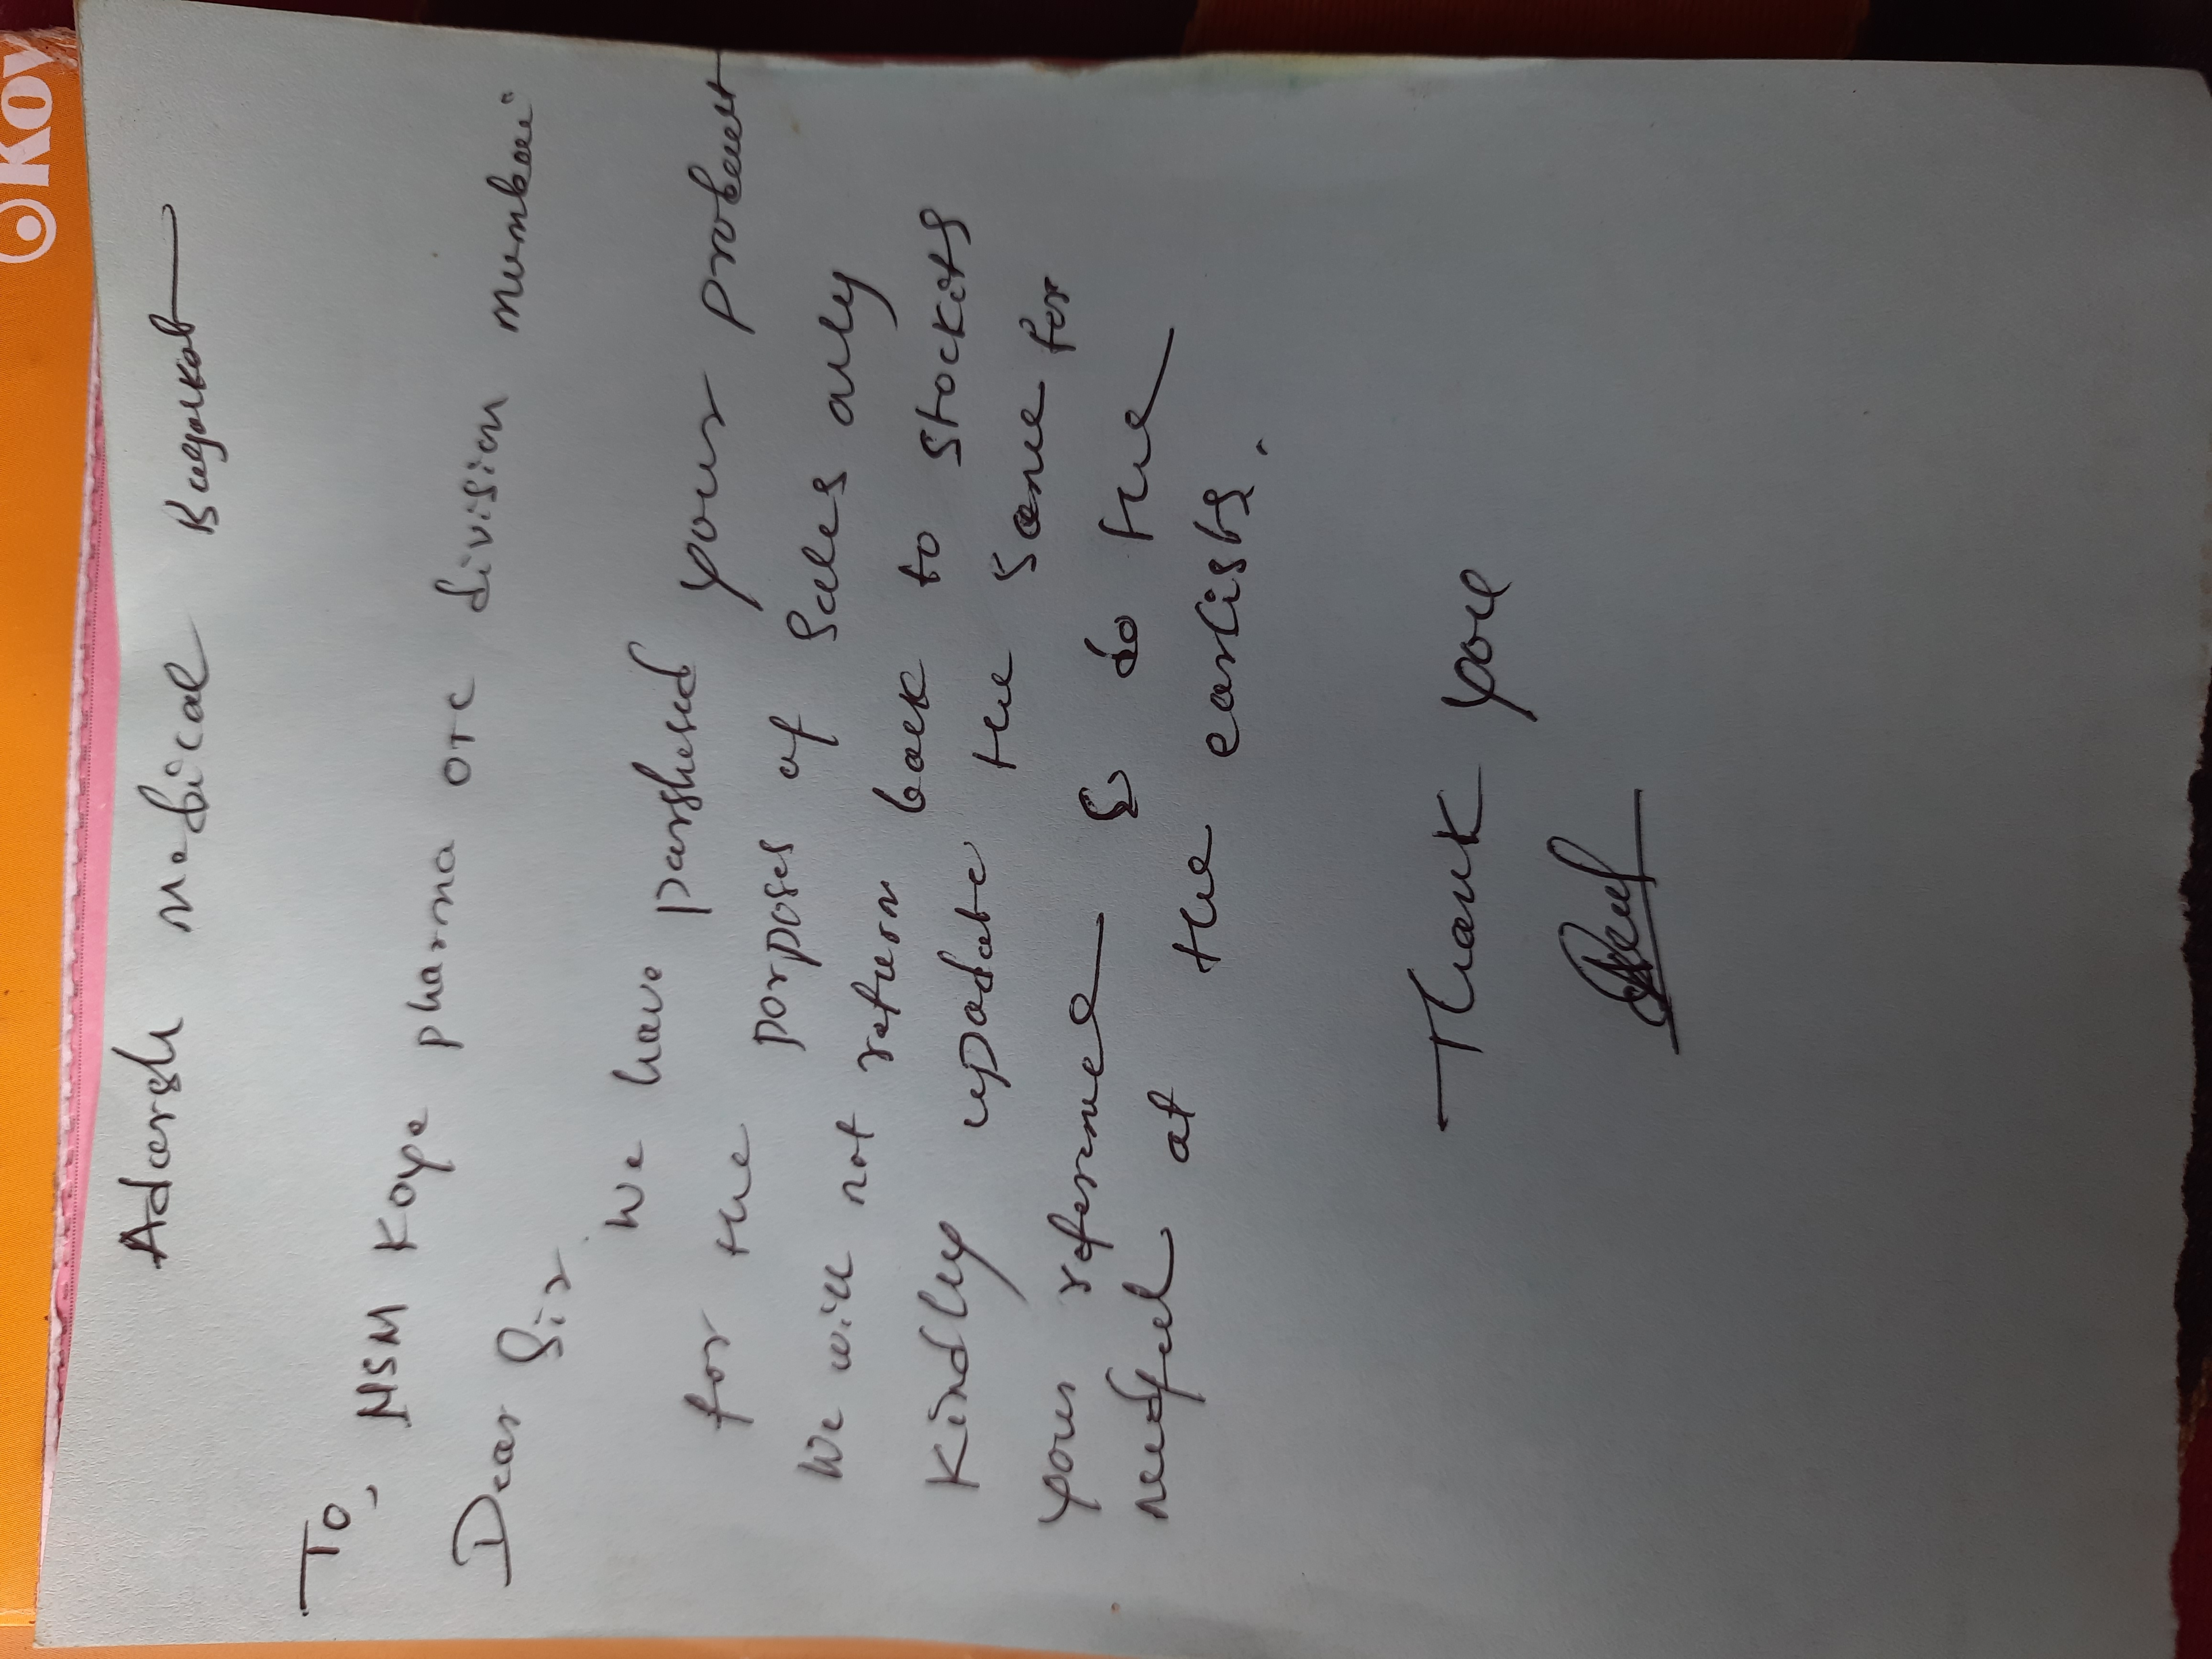 KOY
Adarsh medical Bagalkot
To,
NSM Koye pharma OTC division mumbai
Dear Sir
We have parshesed your probeut
for the porposes of Sales only
We will not return back to stockits
Kindly update the same for
your reference & do the
needful at the earlists.
Thank you